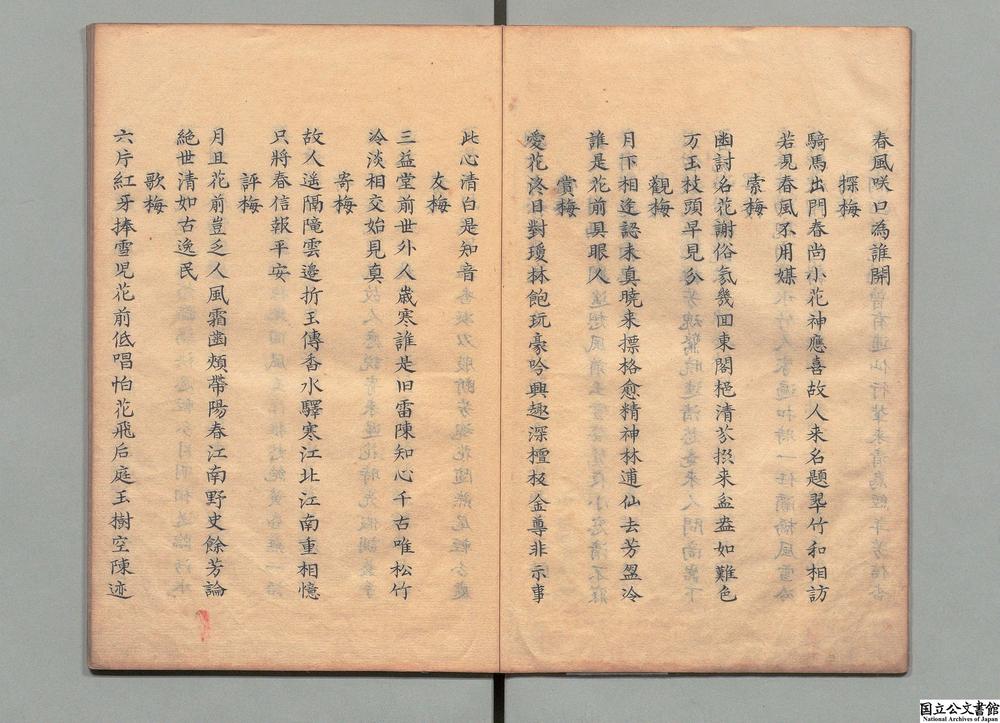 春風咲口為誰開
探梅
騎馬出門春尚小花神應喜故人来名題翠竹和相訪
若見春風不用媒
索梅
幽討名花謝俗氛幾回東閣挹清芬撚来盆盎如難色
万玉枝頭早見分
觀梅
月下相逢認未真曉来摽格愈精神林逋仙去芳盟冷
誰是花前具眼人
賞梅
愛花泠日對瓊林飽玩豪吟興趣深檀板金尊非示事
此心清白是知音
友梅
三益堂前世外人歳寒誰是旧雷陳知心千古唯松竹
冷淡相交始見真
寄梅
故人遥隔隴雲邉折玉傳香水驛寒江北江南重相憶
只將春信報平安
評梅
月旦花前豈乏人風霜齒頰帶陽春江南野史餘芳論
絶世清如古逸民
歌梅
六片紅牙捧雪児花前低唱怕花飛后庭玉樹空陳迹
国立公文書館
National Archives of Japan